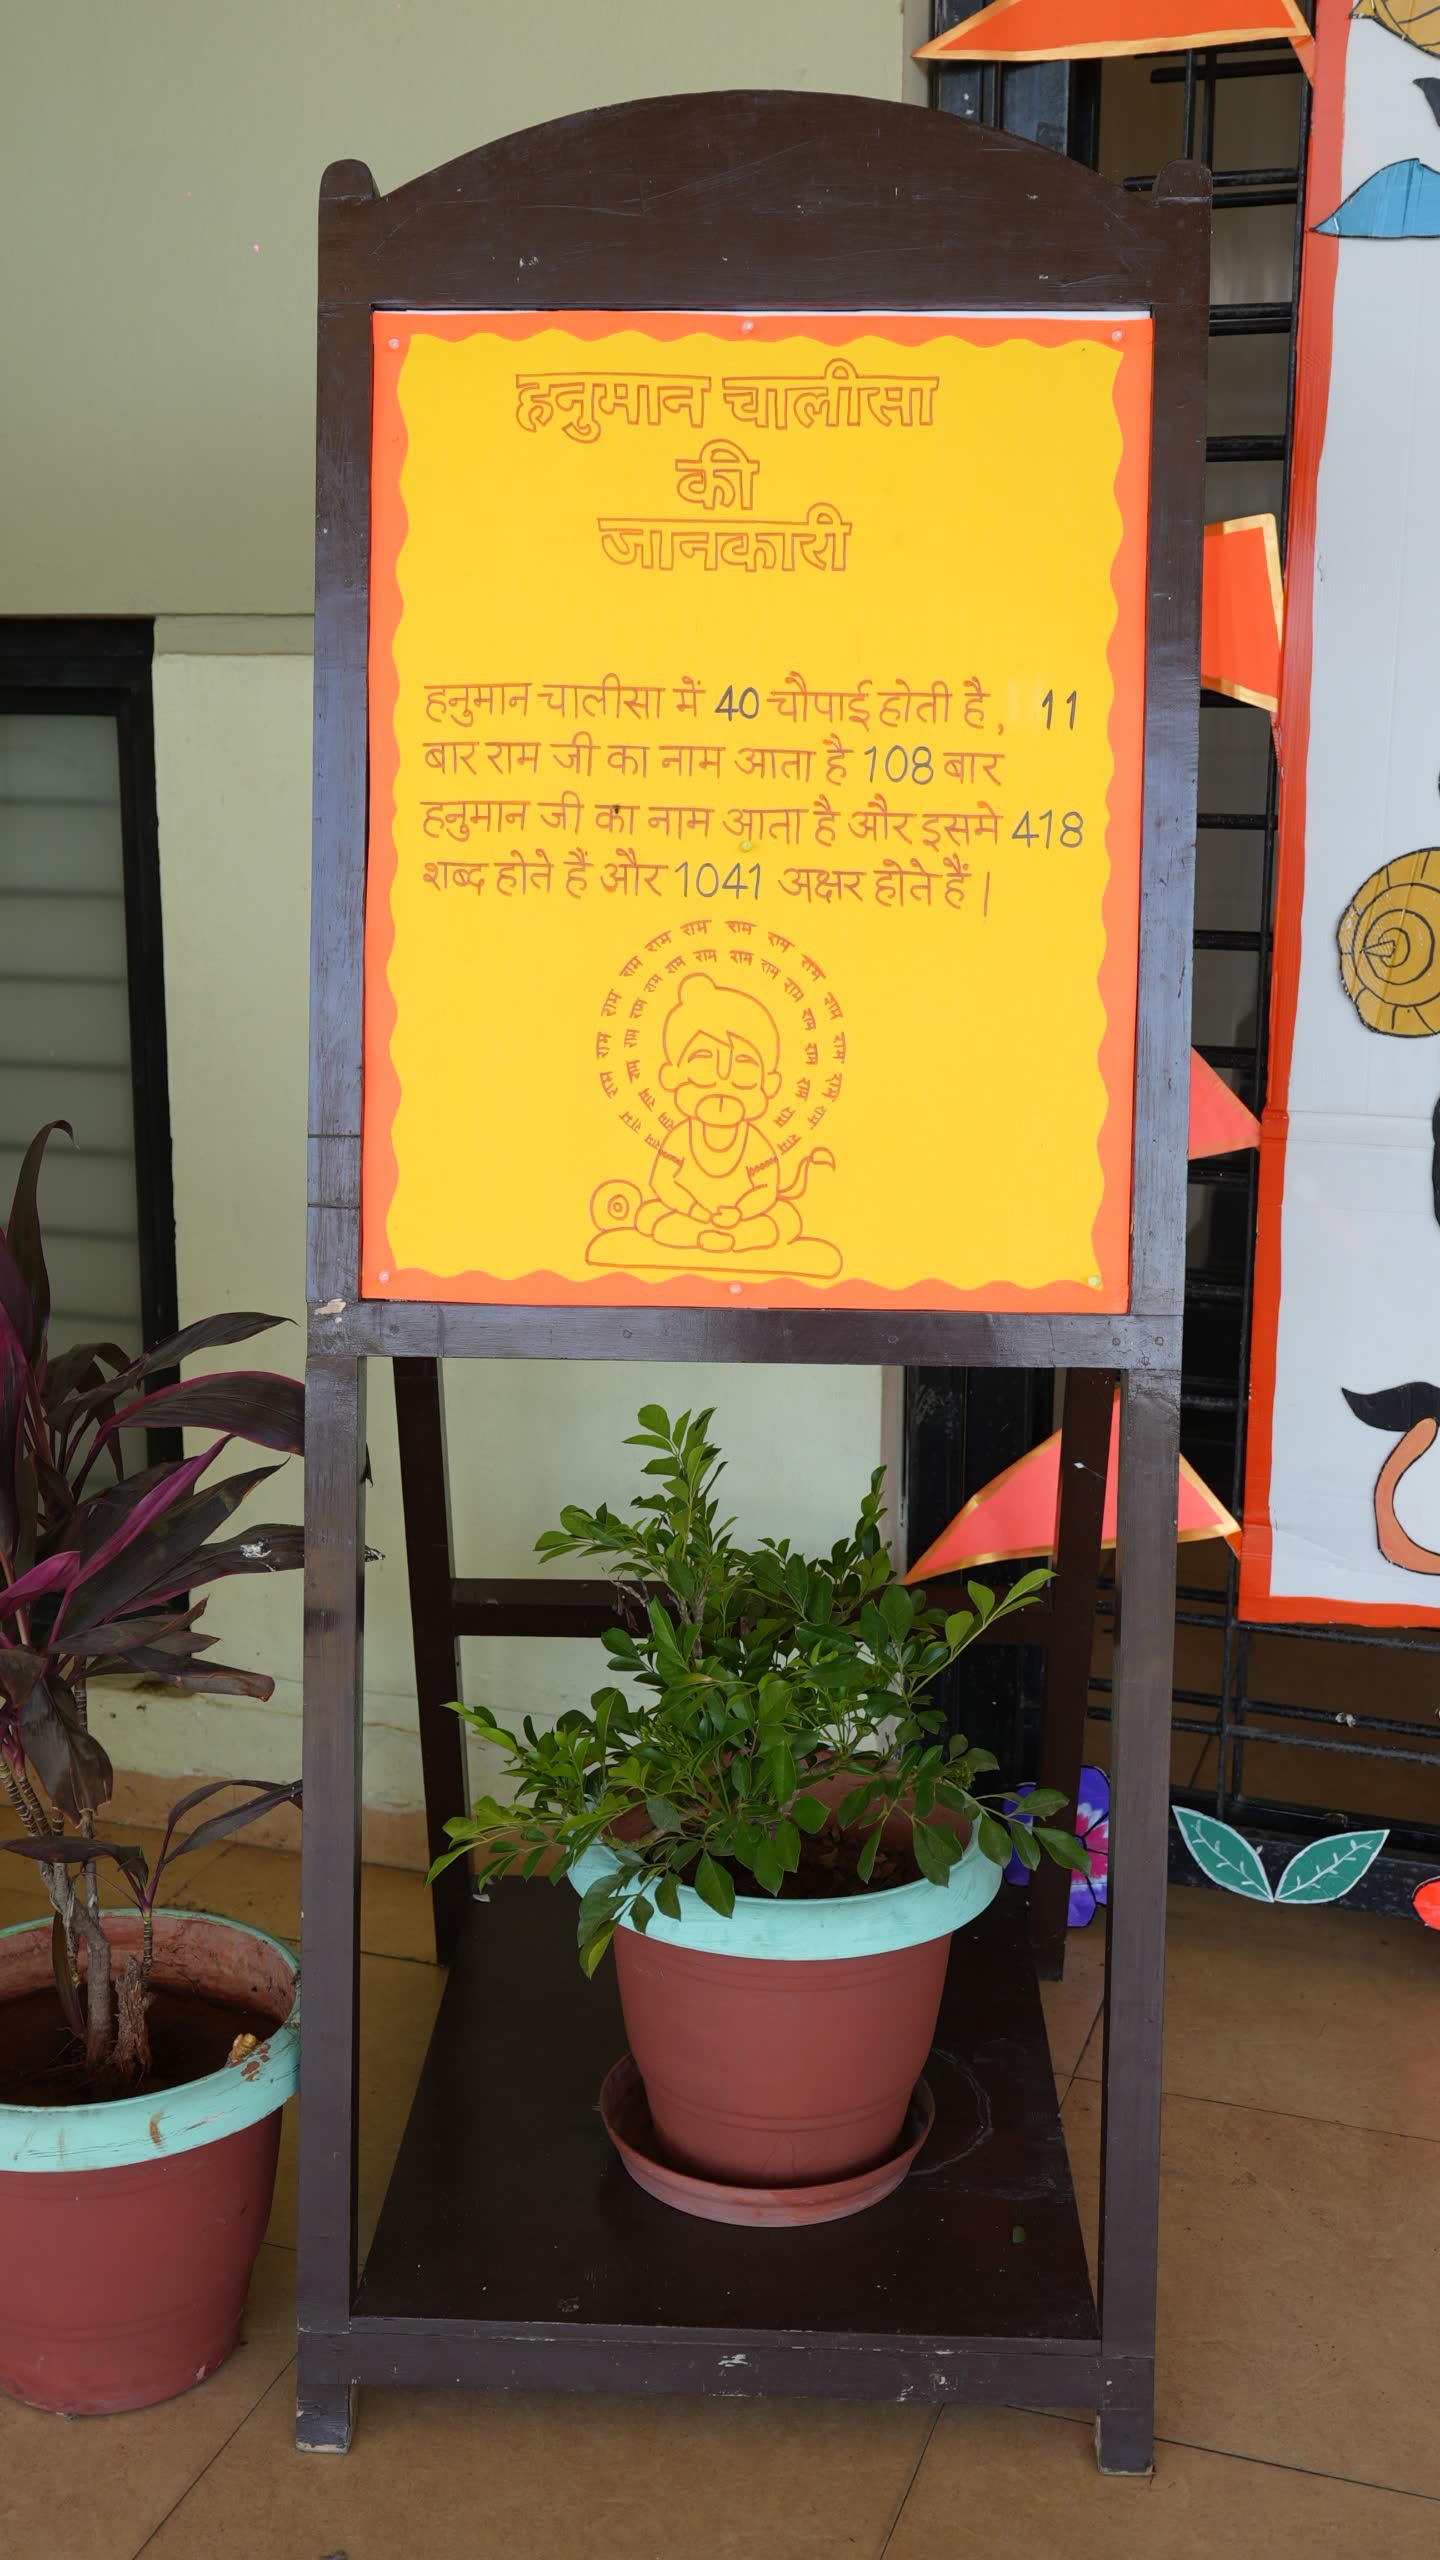 हनुमान चालीसा
की
जानकारी
हनुमान चालीसा में 40 चौपाई होती है, 11
बार राम जी का नाम आता है 108 बार
हनुमान जी का नाम आता है और इसमे 418
शब्द होते हैं और 1041 अक्षर होते हैं।
राम राम राम राम राम राम राम राम राम राम राम राम राम राम राम
राम राम राम राम राम राम राम राम राम राम राम राम राम राम राम